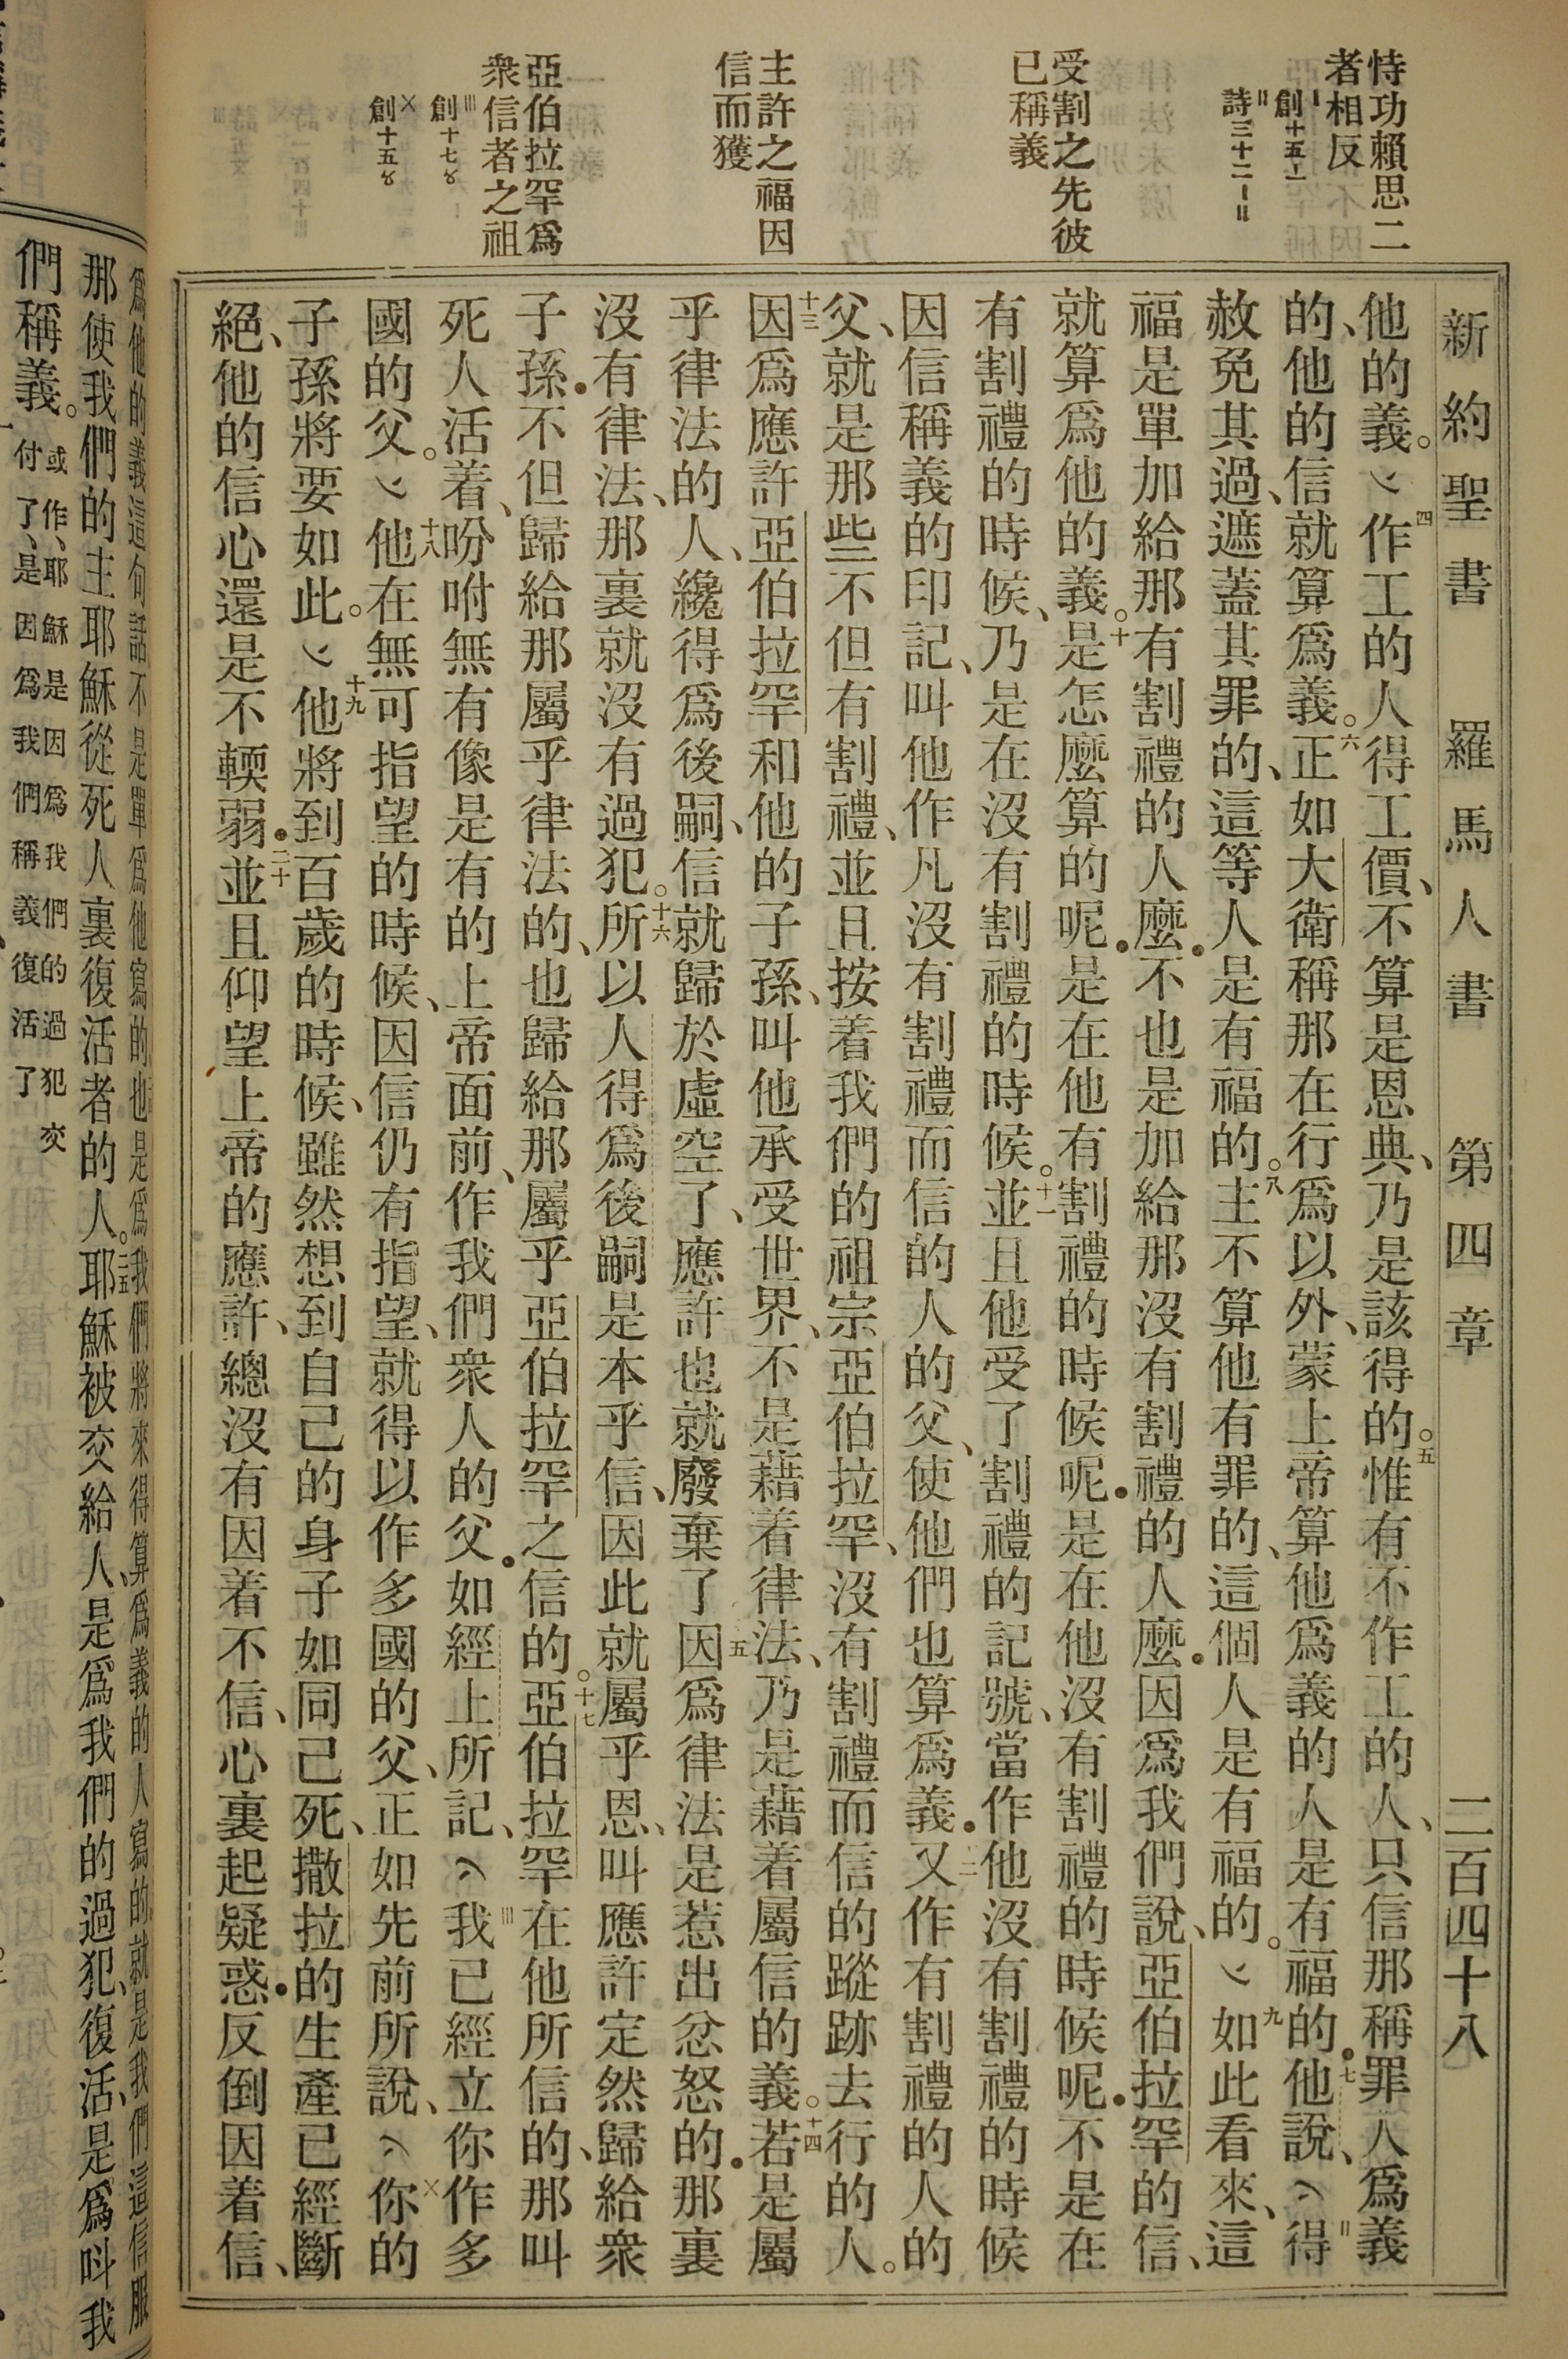 新約聖書　羅馬人書　第四章　二百四十八
恃功賴思二
者相反
創十五·一
詩三十二
受割之先彼
已稱義
主許之福因
信而獲
亞伯拉罕爲
衆信者之祖
創十七
創十五
他的義。⌣四作工的人得工價、不算是恩典、乃是該得的。五惟有不作工的人、只信那稱罪人爲義
的、他的信就算爲義。六正如大衛稱那在行爲以外、蒙上帝算他爲義的人是有福的·七他說、⌢〢得
赦免其過、遮蓋其罪的、這等人是有福的。八主不算他有罪的、這個人是有福的。⌣九如此看來、這
福是單加給那有割禮的人麼·不也是加給那沒有割禮的人麼·因爲我們說、亞伯拉罕的信、
就算爲他的義。十是怎麼算的呢·是在他有割禮的時候呢·是在他沒有割禮的時候呢·不是在
有割禮的時候、乃是在沒有割禮的時候。十一並且他受了割禮的記號、當作他沒有割禮的時候
因信稱義的印記、叫他作凡沒有割禮而信的人的父、使他們也算爲義·十二又作有割禮的人的
父、就是那些不但有割禮、並且按着我們的祖宗亞伯拉罕、沒有割禮而信的蹤跡去行的人。
十三因爲應許亞伯拉罕和他的子孫、叫他承受世界、不是藉着律法、乃是藉着屬信的義。十四若是屬
乎律法的人、纔得爲後嗣、信就歸於虛空了、應許也就廢棄了十五因爲律法是惹出忿怒的·那裏
沒有律法、那裏就沒有過犯。十六所以人得爲後嗣是本乎信、因此就屬乎恩、叫應許定然歸給衆
子孫·不但歸給那屬乎律法的、也歸給那屬乎亞伯拉罕之信的。十七亞伯拉罕在他所信的、那叫
死人活着、吩咐無有像是有的上帝面前、作我們衆人的父·如經上所記、⌢〣我已經立你作多
國的父。⌣十八他在無可指望的時候、因信仍有指望、就得以作多國的父、正如先前所說、⌢〤你的
子孫將要如此。⌣十九他將到百歲的時候、雖然想到自己的身子如同己死、撒拉的生產已經斷
絕、他的信心還是不輭弱·二十並且仰望上帝的應許、總沒有因着不信、心裏起疑惑·反倒因着信、
爲他的義這句話不是單爲他寫的也是爲我們將來得算爲義的人寫的就是我們這信服
那使我們的主耶穌從死人裏復活者的人。耶穌被交給人、是爲我們的過犯、復活、是爲呌我
們稱義。
或作、耶穌是因爲我們的過犯交
付了、是因爲我們稱義復活了